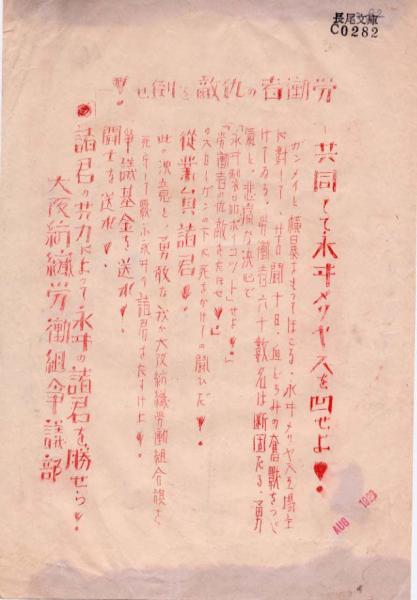 長尾文庫
C0282
労働者の仇敵を倒せ!
共同して永井メリヤスを凹せよ!
ガンメイと横暴をもってほこる、永井メリヤス工場主
に対して、苦闘十日、血どろみの奮戦をつづ
けてゐる、労働者六十数名は断固たる、勇
気と、悲痛な決心で
「永井製品ボイコット」せよ!
「労働者の仇敵をたほせ」!
のスローガンの下に死ものぐるひの闘ひだ!
従業員諸君!
此の決意と、勇敢な我が大阪紡織労働組合
死守して戦ふ永井の諸君をたすけよ!
争議基金を送れ!
闘士を送れ!
諸君の共力によって永井の諸君を勝せろ!
大阪紡織労働組合争議部
AUG 1923